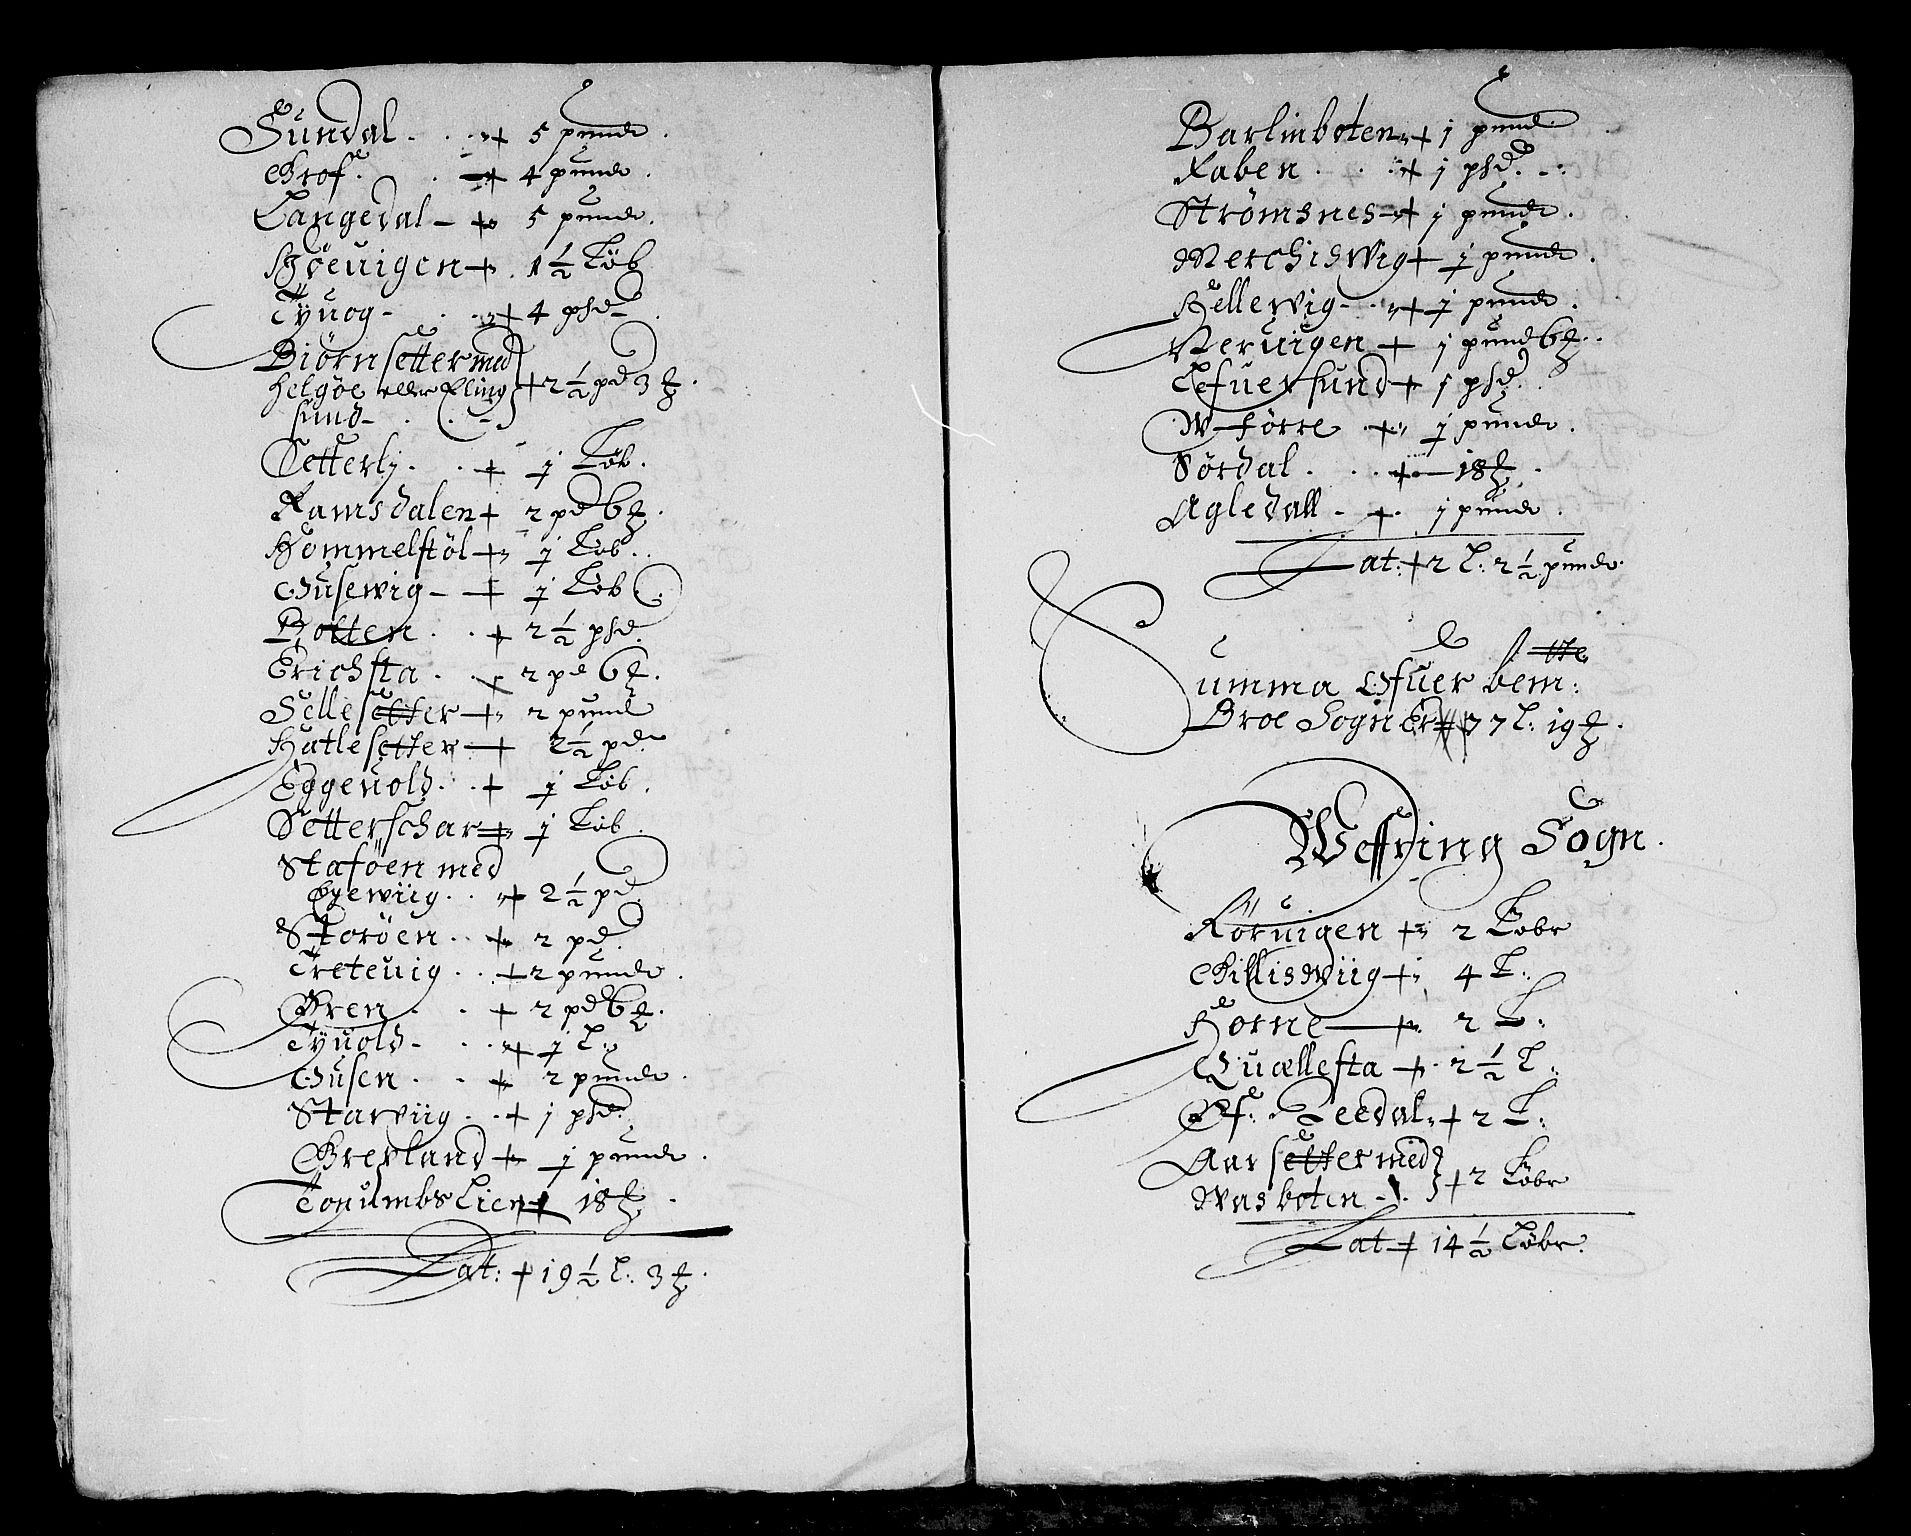 Sundal - + 5 pundt
Grof. + 4 pundt.
Langedal - + 5 pundt.
Høeuigen + 1½ Løb
Tyuog - + 4 phd
Biörnsetter med
helgöe eller Elling } + 2½ pd 3 ℔.
sund -
Setterli. + j Løb.
Ramsdalen + 2 pd 6 ℔.
Hommelstöl + j Løb.
Gusewig - + j Løb
Botten . + 2½ phd.
Erichsta . + 2 pd 6 ℔.
Sellesetter + 2 pund
Hatlesetter + 2½ pd
Eggeuold. + j Løb.
Setterschar + j Løb.
Staföen med
Egewiig . + 2½ pd
Storöen . + 2 pd.
Treteuig . + 2 pundt.
Gren . + 2 pd 6 ℔.
Tyuold - + j L:
Gusen . + 2 pundt.
Starwiig . + j phd.
Brevland + j pundt.
Togumbs Lien + 18 ℔.
Lat: + 19½ L: 3 ℔.
Barlinboten + j pund.
Raben . + j phd.
Strömsnes + j pundt.
Merchiswig + j pundt.
Hellewig - + j pundt.
Neruigen + j pund 6 ℔.
Lefuersund + j phd.
W-förre + j pundt.
Sördal . + 18 ℔.
Agledall - + j pundt.
Lat: + 2 L: 2½ pundt.
Summa Ofuer bem:te
Broe Sogn Er 77 L: 19 ℔.
Weffring Sogn.
Röruigen + 2 Løbr
Gilliswiig + 4 L:
Horne + 2 L:
Quællesta + 2½ L:
Øf: Leedal + 2 L:
Aarsetter med }
Wasboten - } + 2 Løbr
Lat + 14½ Løbr.